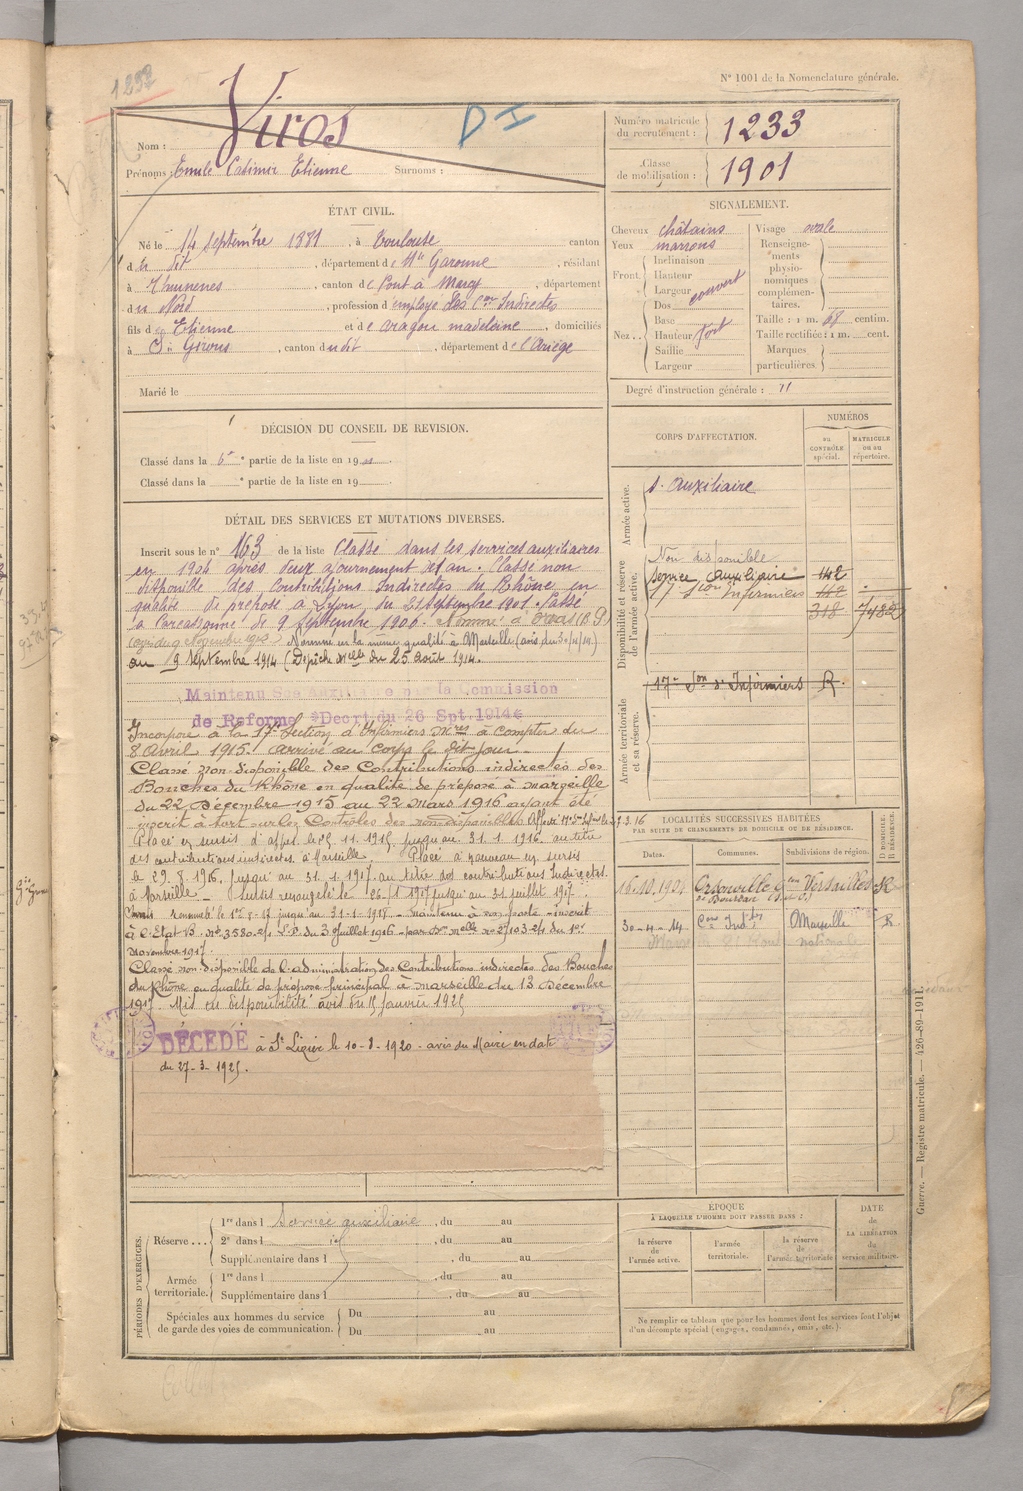 1232
N° 1001 de la Nomenclature générale.
Nom : Viros
D I
Prénoms : Emile Casimir Etienne Surnoms :
Numéro matricule du recrutement : 1233
Classe de mobilisation : 1901
ÉTAT CIVIL.
Né le 14 Septembre 1881, à Toulouse canton
du dit, département de Hte Garonne, résidant
à , canton de Pont à Marcq, département
du Nord, profession d'employé des Cons Indirectes
fils de Etienne et de Aragou madeleine, domiciliés
à St Girons, canton du dit, département de l'Ariège
Marié le
SIGNALEMENT.
Cheveux châtains
Yeux marrons
Front : Inclinaison
Hauteur
Largeur
Dos
couvert
Nez : Base
Hauteur fort
Saillie
Largeur
Visage ovale
Renseignements physionomiques complémentaires.
Taille : 1 m. 68 centim.
Taille rectifiée : 1 m. cent.
Marques particulières
Degré d'instruction générale :
DÉCISION DU CONSEIL DE REVISION.
Classé dans la 6e partie de la liste en 19
Classé dans la e partie de la liste en 19
DÉTAIL DES SERVICES ET MUTATIONS DIVERSES.
Inscrit sous le n° 163 de la liste Classé dans les services auxiliaires
en 1904 après deux ajournements d'un an. Classé non
disponible des Contributions Indirectes du Rhône en
qualité de préposé à Lyon du 21 Septembre 1901. Passé
à Carcassonne le 9 Septembre 1906. Nommé à
Nommé en la même qualité à Marseille (avis du 30/4/14).
au 9 Septembre 1914 (Dépêche Melle du 25 août 1914.
Maintenu Sce Auxiliaire par la Commission
de Réforme Décrt du 26 Spt. 1914
Incorporé à la 17e Section d'Infirmiers Mres à compter du
8 Avril 1915. arrivé au corps le dit jour
Classé non disponible des Contributions indirectes des
Bouches du Rhône en qualité de préposé à marseille
du 22 Décembre 1915 au 22 mars 1916 ayant été
inscrit à tort sur les Contrôles des non disponibles
Placé en sursis d'appel le 25. 11. 1915 jusqu'au 31. 1. 1916 au titre
des contributions indirectes à Marseille. Placé à nouveau en sursis
le 29. 8. 1916 jusqu'au 31. 1. 1917 au titre des contributions Indirectes
à Marseille. Sursis renouvelé le 26-1 1917 jusqu'au 31 juillet 1917.
Sursis renouvelé le 1er 8-17 jusqu'au 31-1-1918. maintenu à son poste inscrit
à l'Etat B. N° 3580 du 3 Juillet 1916
novembre 1917.
Classé non disponible de l'administration des Contributions indirectes des Bouches
du Rhône en qualité de préposé principal à marseille du 13 Décembre
1917. Mis en disponibilité avis du 15 Janvier 1925
DÉCÉDÉ à St Lizier le 10-8-1920 avis du Maire en date
du 27-3-1925.
CORPS D'AFFECTATION.
NUMÉROS
au CONTRÔLE spécial.
MATRICULE ou au répertoire.
Armée active.
S. Auxiliaire
Disponibilité et réserve de l'armée active.
Non disponible
Service Auxiliaire 142
17e Son Infirmiers 142
318 7482
Armée territoriale et sa réserve.
17e Son d'Infirmiers R.
LOCALITÉS SUCCESSIVES HABITÉES
PAR SUITE DE CHANGEMENTS DE DOMICILE OU DE RÉSIDENCE.
Dates. Communes. Subdivisions de région. D DOMICILE. R RÉSIDENCE.
16.10.1904 Versailles R
30-4-14 Cons Indtes Marseille R.
Guerre. — Registre matricule. — 426-89-1911.
PÉRIODES D'EXERCICES.
Réserve
1re dans l Service auxiliaire, du au
2e dans l , du au
Supplémentaire dans l , du au
Armée territoriale.
1re dans l , du au
Supplémentaire dans l , du au
Spéciales aux hommes du service de garde des voies de communication.
Du au
Du au
ÉPOQUE
À LAQUELLE L'HOMME DOIT PASSER DANS :
la réserve de l'armée active.
l'armée territoriale.
la réserve de l'armée territoriale
DATE de LA LIBÉRATION du service militaire.
Ne remplir ce tableau que pour les hommes dont les services font l'objet
d'un décompte spécial (engagés, condamnés, omis, etc.).